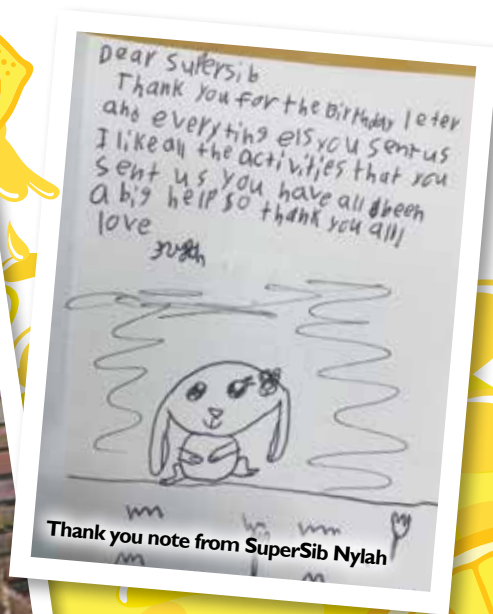 Dear Supersib
Thank you for the Birthday leter
and everyting els you sent us
I like all the activities that you
sent us you have all been
a big help so thank you all
love
Thank you note from SuperSib Nylah